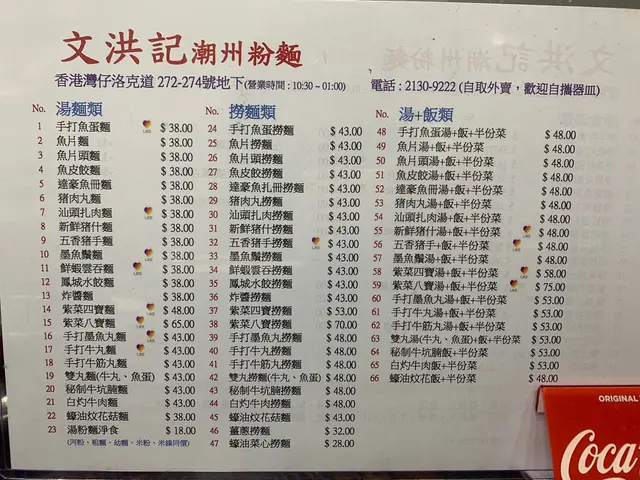 文洪記潮州粉麵
香港灣仔洛克道 272-274號地下(營業時間 : 10:30 ~ 01:00)
電話 : 2130-9222 (自取外賣，歡迎自攜器皿)
No. 湯麵類
1 手打魚蛋麵 LIKE $ 38.00
2 魚片麵 $ 38.00
3 魚片頭麵 $ 38.00
4 魚皮餃麵 $ 38.00
5 達豪魚冊麵 $ 38.00
6 猪肉丸麵 $ 38.00
7 汕頭扎肉麵 LIKE $ 38.00
8 新鮮猪什麵 $ 38.00
9 五香猪手麵 $ 38.00
10 墨魚鬚麵 LIKE $ 38.00
11 鮮蝦雲吞麵 LIKE $ 38.00
12 鳳城水餃麵 $ 38.00
13 炸醬麵 $ 38.00
14 紫菜四寶麵 LIKE $ 48.00
15 紫菜八寶麵 LIKE $ 65.00
16 手打墨魚丸麵 LIKE $ 43.00
17 手打牛丸麵 LIKE $ 43.00
18 手打牛筋丸麵 $ 43.00
19 雙丸麵(牛丸、魚蛋) $ 43.00
20 秘制牛坑腩麵 $ 43.00
21 白灼牛肉麵 $ 43.00
22 蠔油炆花菇麵 $ 38.00
23 湯粉麵淨食 $ 18.00
(河粉、粗麵、幼麵、米粉、米線同價)
No. 撈麵類
24 手打魚蛋撈麵 $ 43.00
25 魚片撈麵 $ 43.00
26 魚片頭撈麵 $ 43.00
27 魚皮餃撈麵 $ 43.00
28 達豪魚扎冊撈麵 $ 43.00
29 猪肉丸撈麵 $ 43.00
30 汕頭扎肉撈麵 $ 43.00
31 新鮮猪什撈麵 $ 43.00
32 五香猪手撈麵 LIKE $ 43.00
33 墨魚鬚撈麵 $ 43.00
34 鮮蝦雲吞撈麵 $ 43.00
35 鳳城水餃撈麵 $ 43.00
36 炸醬撈麵 $ 43.00
37 紫菜四寶撈麵 $ 53.00
38 紫菜八寶撈麵 $ 70.00
39 手打墨魚丸撈麵 $ 48.00
40 手打牛丸撈麵 $ 48.00
41 手打牛筋丸撈麵 $ 48.00
42 雙丸撈麵(牛丸、魚蛋) $ 48.00
43 秘制牛坑腩撈麵 $ 48.00
44 白灼牛肉撈麵 $ 48.00
45 蠔油炆花菇撈麵 $ 43.00
46 薑蔥撈麵 $ 32.00
47 蠔油菜心撈麵 $ 28.00
No. 湯+飯類
48 手打魚蛋湯+飯+半份菜 $ 48.00
49 魚片湯+飯+半份菜 $ 48.00
50 魚片頭湯+飯+半份菜 $ 48.00
51 魚皮餃湯+飯+半份菜 $ 48.00
52 達豪魚冊湯+飯+半份菜 $ 48.00
53 猪肉丸湯+飯+半份菜 $ 48.00
54 汕頭扎肉湯+飯+半份菜 $ 48.00
55 新鮮猪什湯+飯+半份菜 LIKE $ 48.00
56 五香猪手飯+半份菜 LIKE $ 48.00
57 墨魚鬚湯+飯+半份菜 $ 48.00
58 紫菜四寶湯+飯+半份菜 LIKE $ 58.00
59 紫菜八寶湯+飯+半份菜 LIKE $ 75.00
60 手打墨魚丸湯+飯+半份菜 $ 53.00
61 手打牛丸湯+飯+半份菜 $ 53.00
62 手打牛筋丸湯+飯+半份菜 $ 53.00
63 雙丸湯(牛丸、魚蛋)+飯+半份菜 $ 53.00
64 秘制牛坑腩飯+半份菜 $ 53.00
65 白灼牛肉飯+半份菜 $ 53.00
66 蠔油炆花飯+半份菜 $ 48.00
ORIGINAL
Coca